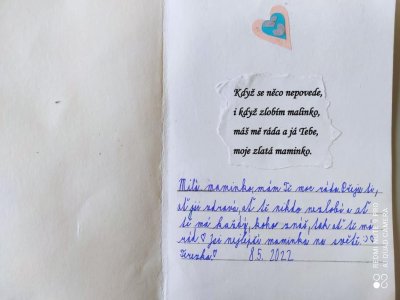 Když se něco nepovede,
i když zlobím malinko,
máš mě ráda a já Tebe,
moje zlatá maminko.
Milá maminko, mám Tě moc ráda. Přeju ti,
ať jsi zdravá, ať tě nikdo nezlobí a ať
tě má každý, koho znáš, tak ať tě má
rád ♡ Jsi nejlepší maminka na světě.
Terezka ♡ 8.5. 2022
REDMI
AI QUAD CAMERA